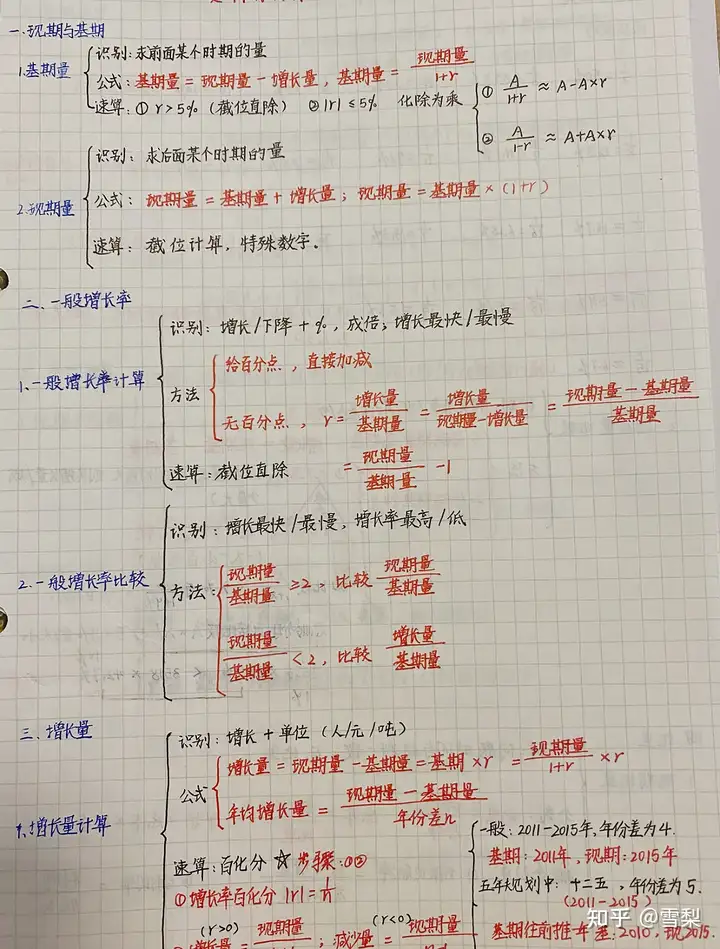 一.现期与基期
1.基期量
识别：求前面某个时期的量
公式：基期量=现期量-增长量，基期量=现期量/1+r
速算：① r>5%（截位直除） ②|r|≤5% 化除为乘
① A/1+r ≈ A-A×r
② A/1-r ≈ A+A×r
2.现期量
识别：求后面某个时期的量
公式：现期量=基期量+增长量；现期量=基期量×(1+r)
速算：截位计算，特殊数字.
二.一般增长率
1.一般增长率计算
识别：增长/下降+%，成倍；增长最快/最慢
方法
给百分点，直接加减
无百分点，r=增长量/基期量=增长量/现期量-增长量=现期量-基期量/基期量
=现期量/基期量-1
速算：截位直除
2.一般增长率比较
识别：增长最快/最慢，增长率最高/低
方法：
现期量/基期量≥2，比较 现期量/基期量
现期量/基期量<2，比较 增长量/基期量
三.增长量
1.增长量计算
识别：增长+单位（人/元/吨）
公式
增长量=现期量-基期量=基期×r=现期量/1+r×r
年均增长量=现期量-基期量/年份差n
速算：百化分☆步骤:①②
①增长率百化分|r|=1/n
(r>0) 现期量
；减少量=(r<0) 现期量
一般：2011-2015年，年份差为4.
基期：2011年，现期：2015年
五年规划中：十二五，年份差为5.
(2011-2015)
基期往前推一年差：2010，现2015.
知乎 @雪梨